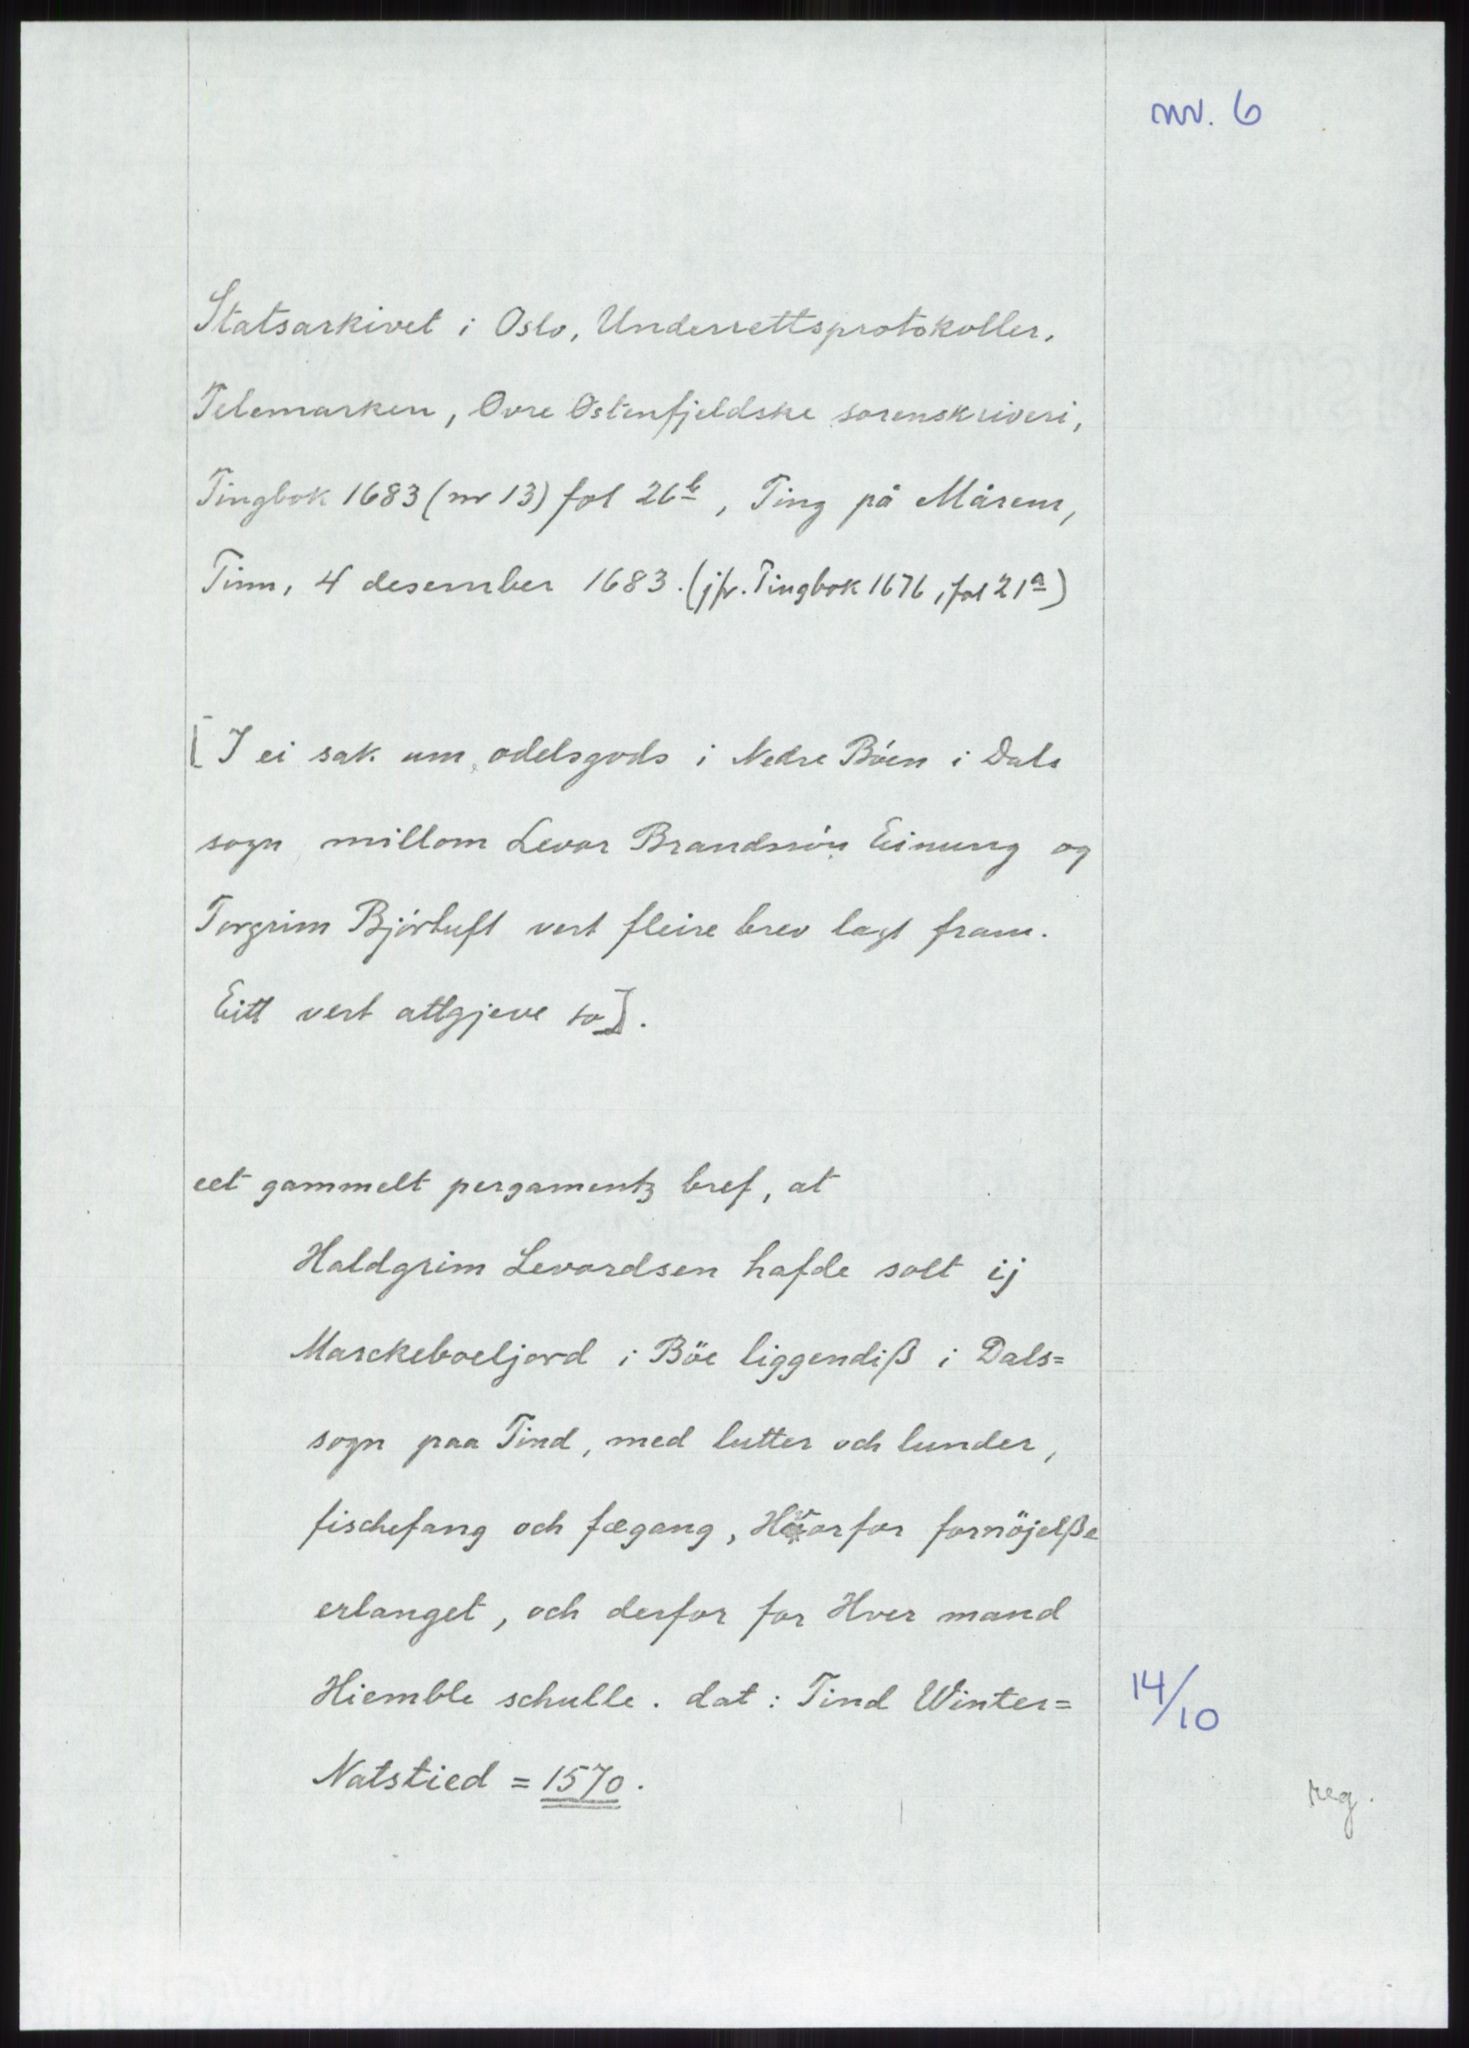 nr. 6
Statsarkivet i Oslo, Underrettsprotokoller,
Telemarken, Ovre Ostenfjeldske sorenskriveri,
Tingbok 1683 (nr 13) fol 26b, Ting på Mårem,
Tinn, 4 desember 1683. (jfr. Tingbok 1676, fol 21a)
[I ei sak um odelsgods i Nedre Böen i Dals
sogn millom Levor Brandsson Einung og
Torgrim Björtuft vert fleire brev lagt fram.
Eitt vert attgjeve so].
eet gammelt pergamentz bref, at
Haldgrim Levordsen hafde solt ij
Marckeboeljord i Böe liggendiß i Dals=
sogn paa Tind, med lutter och lunder,
fischefang och fægang, Hvorfor fornöjelße
erlanget, och derfor for Hver mand
Hiemble schulle. dat: Tind Winter=
14/10
Natstied = 1570.
reg.